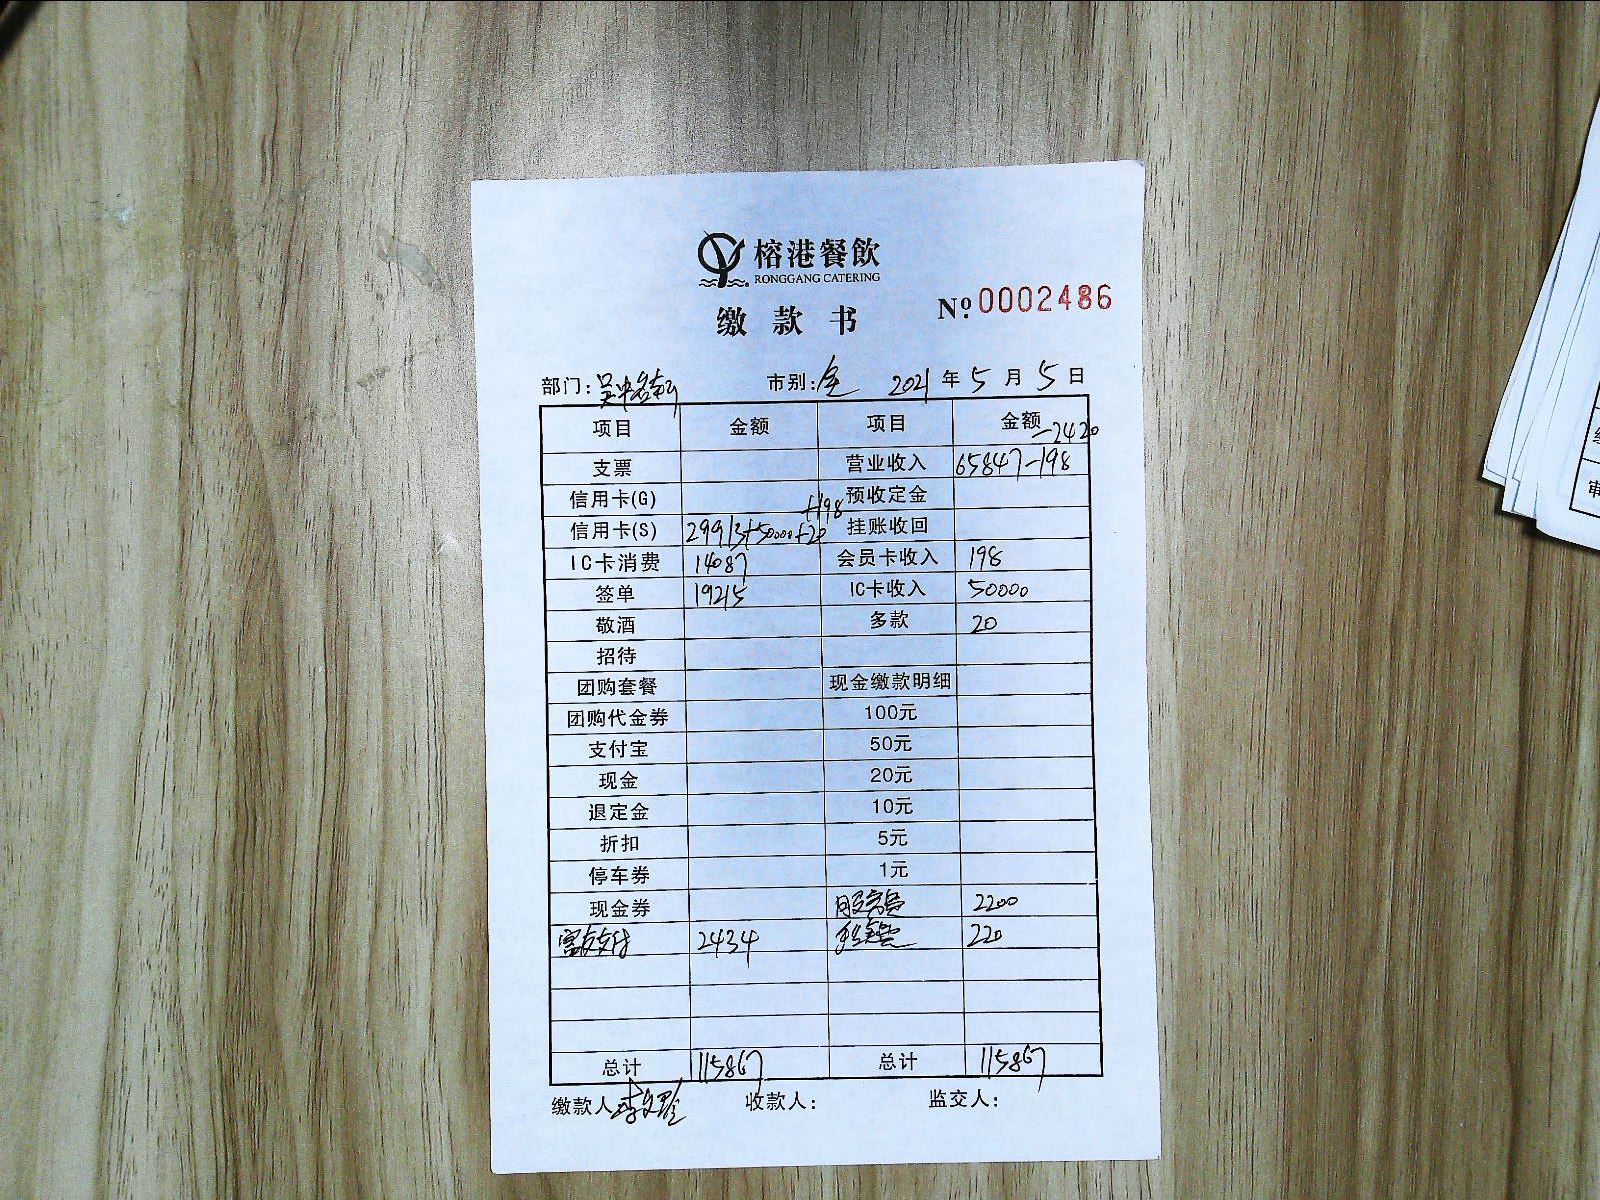 榕港餐飲
RONGGANG CATERING
缴款书 №0002486
部门:吴中 市别:全 2021年5月5日
项目 金额 项目 金额 -2420
支票 营业收入 65847-198
信用卡(G) 预收定金
信用卡(S) 29913+50000+20+198 挂账收回
IC卡消费 14087 会员卡收入 198
签单 19215 IC卡收入 50000
敬酒 多款 20
招待
团购套餐 现金缴款明细
团购代金券 100元
支付宝 50元
现金 20元
退定金 10元
折扣 5元
停车券 1元
现金券 服务费 2200
富友支付 2434 220
总计 115867 总计 115867
缴款人 收款人: 监交人: